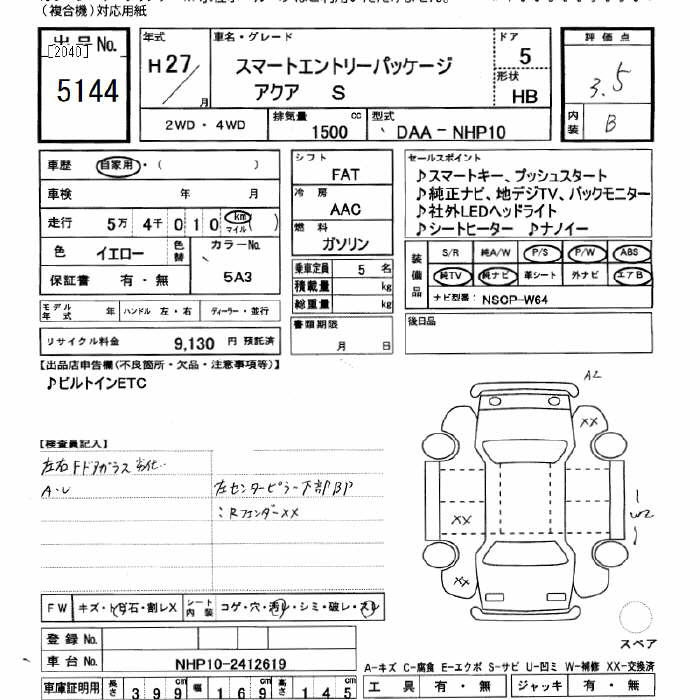 (複合機)対応用紙
出品No.
[2040]
5144
年式
H27/
月
車名・グレード
スマートエントリーパッケージ
アクア S
ドア
5
形状
HB
2WD・4WD
排気量
1500
cc
型式
DAA-NHP10
評価点
3.5
内装
B
車歴
自家用・( )
車検
年 月
走行
5万 4千 0 1 0 km マイル ( )
色
イエロー
色替
カラーNo.
5A3
保証書
有・無
モデル年式
年
ハンドル 左・右
ディーラー・並行
リサイクル料金
9,130 円 預託済
シフト
FAT
冷房
AAC
燃料
ガソリン
乗車定員 5 名
積載量 kg
総重量 kg
書類期限
月 日
セールスポイント
♪スマートキー、プッシュスタート
♪純正ナビ、地デジTV、バックモニター
♪社外LEDヘッドライト
♪シートヒーター ♪ナノイー
装備品
S/R 純A/W P/S P/W ABS
純TV 純ナビ 革シート 外ナビ エアB
ナビ型番: NSCP-W64
後日品
【出品店申告欄(不良箇所・欠品・注意事項等)】
♪ビルトインETC
【検査員記入】
左右FドアガラスB劣化
A・U
左センターピラー下部BP
:Rフェンダー××
A2
××
××
××
W2
FW
キズ・トビ石・割レX
シート内装
コゲ・穴・汚レ・シミ・破レ・スレ
登録No.
車台No.
NHP10-2412619
車庫証明用
長さ 3 9 9 cm
幅 1 6 9 cm
高さ 1 4 5 cm
スペア
A-キズ C-腐食 E-エクボ S-サビ U-凹ミ W-補修 XX-交換済
工具 有・無
ジャッキ 有・無